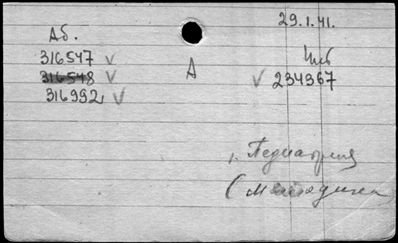 29.1.41.
Аб.
316547 V
316548 V
316992 V
А
Инв
V 234367
1. Педиатрия
(